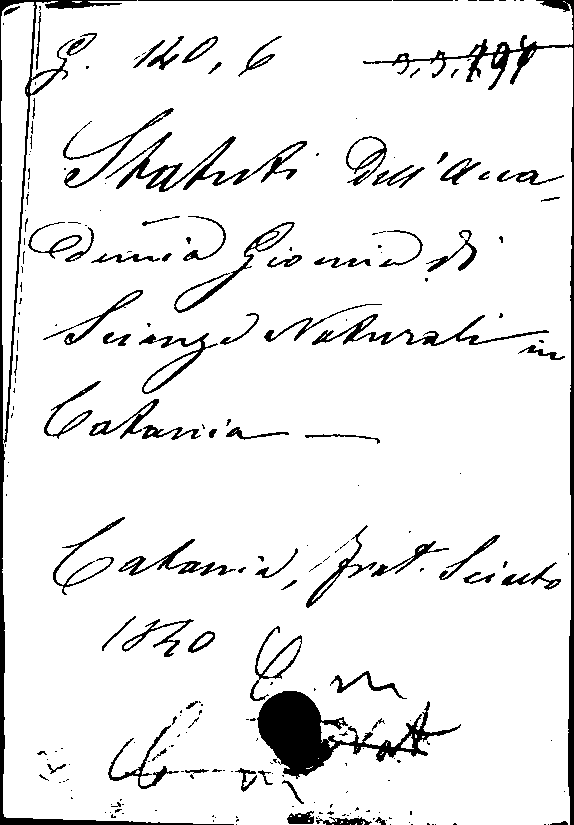 G. 120, 6 3.3.291
Statuti Dell'Acca-
demia Gioenia di
Scienze Naturali in
Catania —
Catania, frat. Sciuto
1840
C. m
C. m